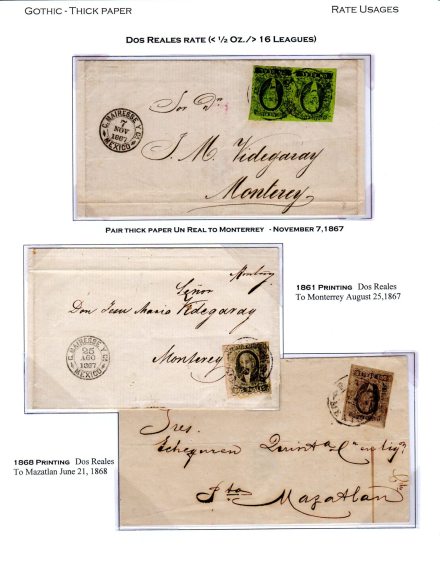 GOTHIC - THICK PAPER
RATE USAGES
DOS REALES RATE (< ½ OZ./> 16 LEAGUES)
C. MAIRESSE Y Cia
7
NOV
1867
MEXICO
Sor Dn
J. M. Videgaray
Monterey
PAIR THICK PAPER UN REAL TO MONTERREY - NOVEMBER 7,1867
1861 PRINTING Dos Reales
To Monterrey August 25,1867
Señor
Don Jesus Maria Videgaray
Monterey
C. MAIRESSE Y Cia
25
AGO
1867
MEXICO
1868 PRINTING Dos Reales
To Mazatlan June 21, 1868
Sres.
Echeguren Quintana
Pto
Mazatlan